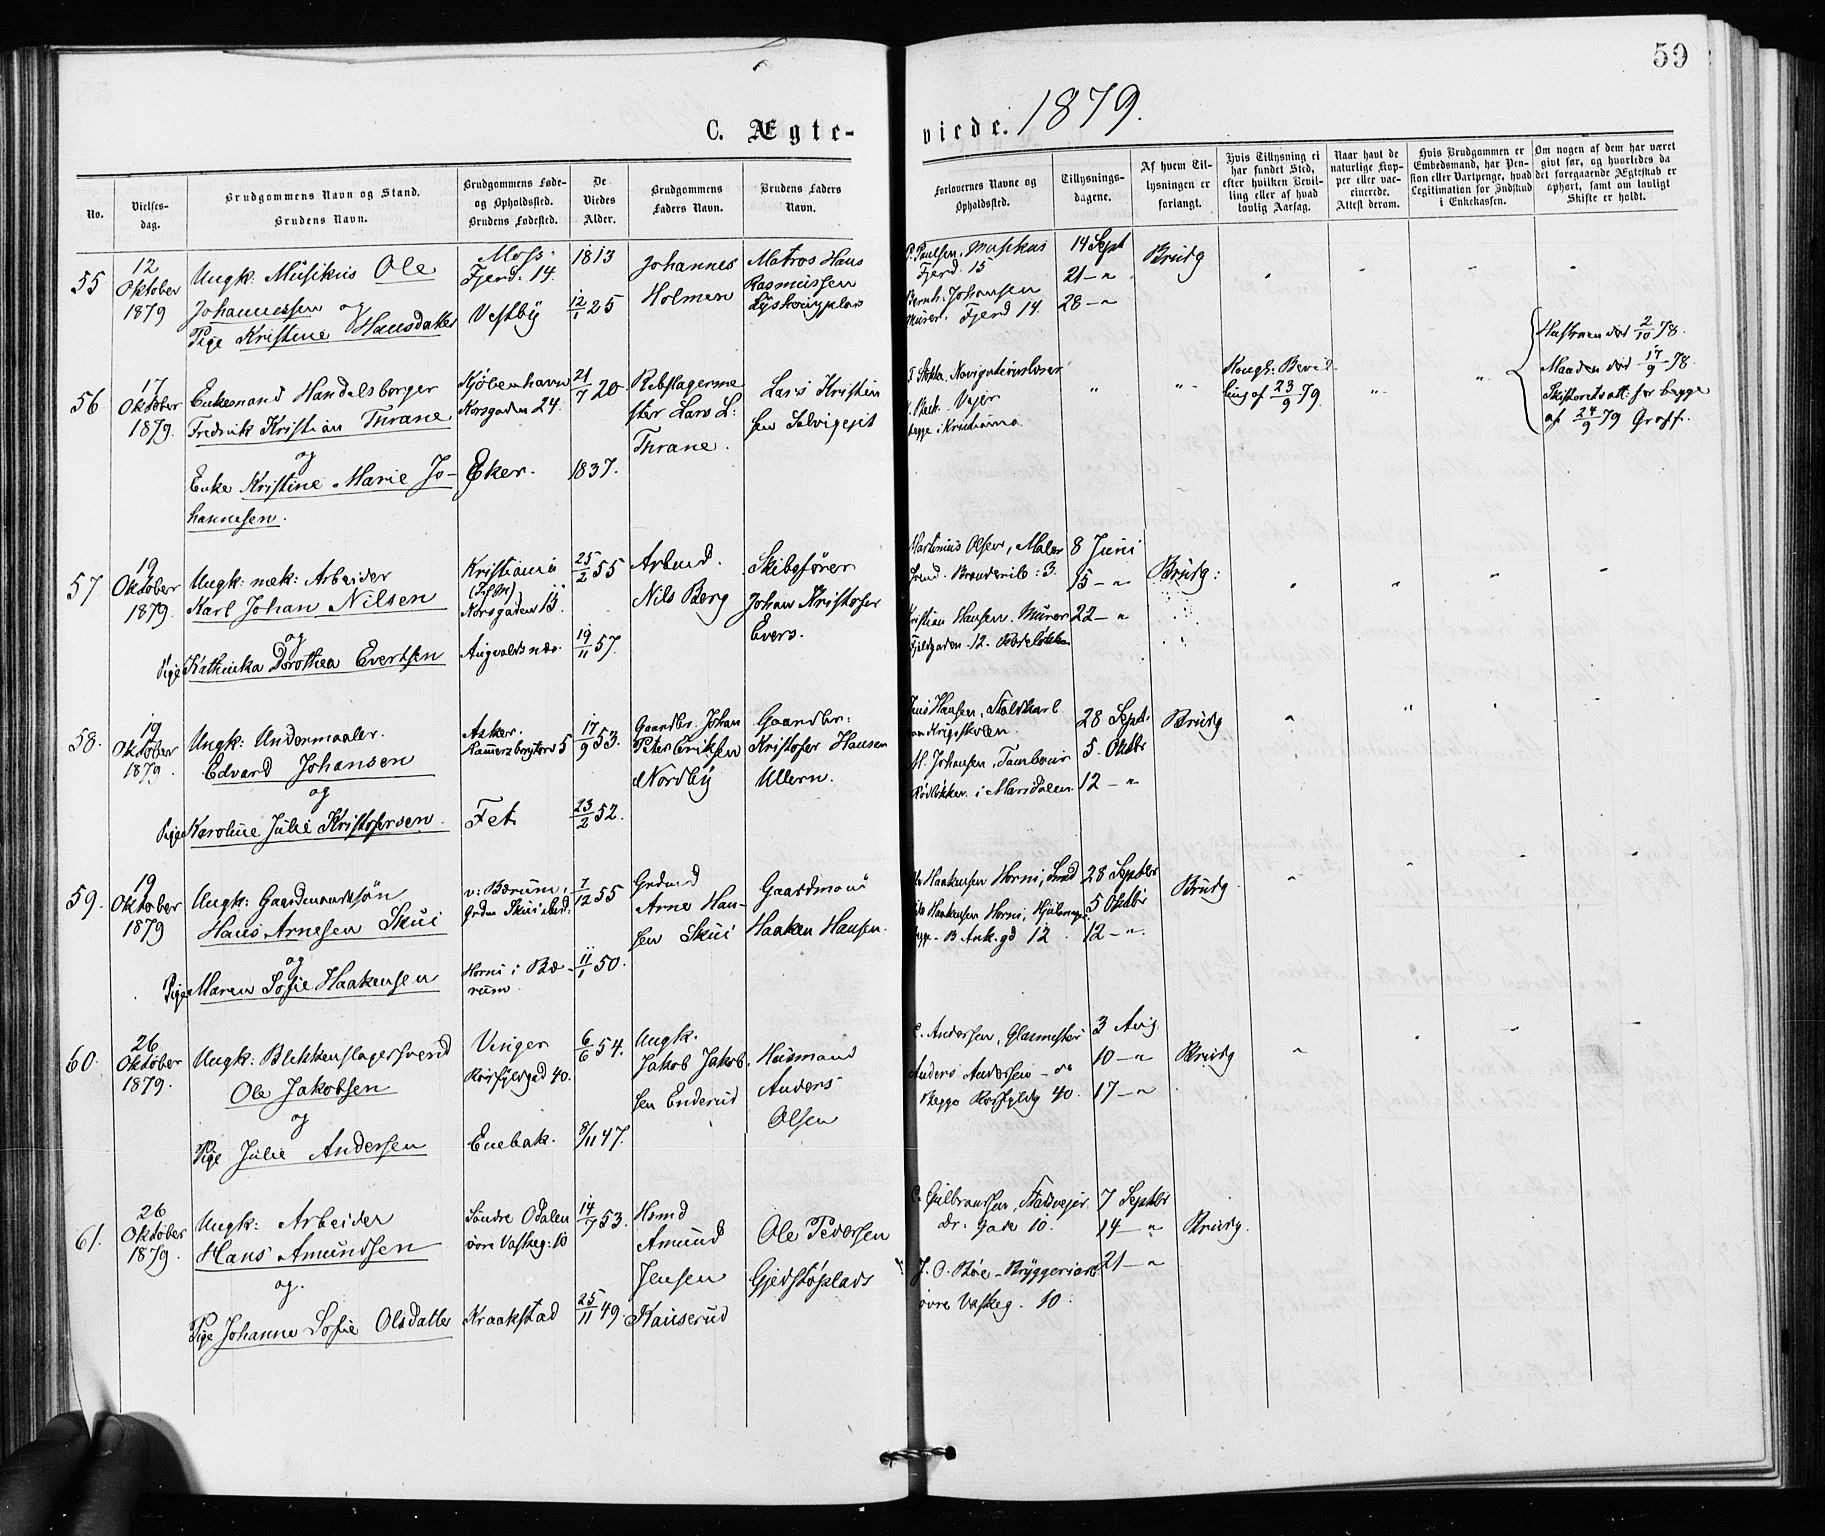 59
C. Ægte-
viede. 1879.
No.
Vielses-
dag.
Brudgommens Navn og Stand.
Brudens Navn.
Brudgommens Føde-
og Opholdssted.
Brudens Fødested.
De
Viedes
Alder.
Brudgommens
Faders Navn.
Brudens Faders
Navn.
Forlovernes Navne og
Opholdssted.
Tillysnings-
dagene.
Af hvem Til-
lysningen er
forlangt.
Hvis Tillysning ei
har fundet Sted,
efter hvilken Bevil-
ling eller af hvad
lovlig Aarsag.
Naar havt de
naturlige Kop-
per eller vac-
cinerede.
Attest derom.
Hvis Brudgommen er
Embedsmand, har Pen-
sion eller Vartpenge, hvad
Legitimation for Indskud
i Enkekassen.
Om nogen af dem har været
givt før, og hvorledes da
det foregaaende Ægteskab er
ophørt, samt om lovligt
Skifte er holdt.
55
12
Oktober
1879
Ungk: Musikus Ole
Johannessen og
Pige Kristine Hansdatter
Moss.
Fjerd. 14.
Vestby
1813
12/1 25
Johannes
Holmen
Matros Hans
Rasmussen
P. Paulsen, Musikus
Fjerd. 15
Bernh. Johansen
Murer. Fjerd 14.
14 Sept
21 - "
28 - "
Brudg
56
17
Oktober
1879.
Enkemand Handelsborger
Fredrik Kristian Thrane
og
Enke Kristine Marie Jo-
hannesen.
Kjøbenhavn
Korsgaden 24.
Eker.
21/7 20
1837.
Rebslagerme
ster Lars L:
Thrane.
Lars Kristen
sen Solvigejet
Navigationslærer
Vejer
begge i Kristiania
"
"
Kongl: Bevil-
ling af 23/9 79.
"
"
Hustruen død 2/10 78.
Manden død 17/9 78.
Skifteretsatt: for begge
af 24/9 79 Groff.
57
19
Oktober
1879.
Ungk: mek: Arbeider
Karl Johan Nilsen
og
Pige Kathinka Dorothea Evertsen
Kristiania
Korsgaden 13.
Augvaldsnæs.
25/2 55
19/11 57.
Arbmd.
Nils Berg
Skibsfører
Johan Kristofer
Evers.
Martinius Olsen, Maler
Svend. Brennerib: 3.
Kristian Hansen. Murer
Fjeldgaden 12.
8 Juni
15 - "
22 - "
Brudg:
58.
19
Oktober
1879.
Ungk: Undermaaler.
Edvard Johansen
og
Pige Karoline Julie Kristofersen.
Asker.
5
Fet
17/9 53.
23/2 52.
Gaardbr. Johan
Peter Eriksen
Nordby
Gaardbr:
Kristofer Hansen
Ullern.
Jens Hansen, Staldkarl
paa Krigsskolen.
M. Johansen, Tambour
i Maridalen
28 Septr
5. Oktbr
12 - "
Brudg
59.
19
Oktober
1879
Ungk: Gaardmandssøn
Hans Arnesen Skui
og
Pige Maren Sofie Haakensen
v: Bærum.
Horni i Bæ-
rum.
7/12 55
11/1 50.
Grdmd
Arne Han-
sen Skui
Gaardmand
Haaken Hansen.
Haakensen Horni, Smed
Haakensen Horni, Hjulmager
begge B Ank.gd 12
28 Septbr
5 Oktbr
12 - "
Brudg
60.
26
Oktober
1879.
Ungk: Blikkenslagersvend
Ole Jakobsen
og
Pige Julie Andersen
Vinger
Korsfjeldgad 40.
Enebak.
6/6 54.
8/11 47.
Ungk.
Jakob Jakob-
sen Enderud
Husmand
Anders
Olsen
C. Andersen, Glasmester
Anders Andersen - do
Begge Korsfjeldg 40.
3 Aug.
10 - "
17 - "
Brudg
61.
26
Oktober
1879.
Ungk: Arbeider
Hans Amundsen
og.
Pige Johanne Sofie Olsdatter
Søndre Odalen
øvre Vaskeg: 10
Kraakstad
14/7 53.
25/11 49
Hsmd
Amund
Jensen
Kauserud
Ole Pedersen
Gjedstøplads
C. Gulbransen, Stadsvejer
Dr. Gade 10.
J. O. Bøe - Bryggeriarb
øvre Vaskeg. 10.
7 Septbr
14 - "
21 - "
Brudg.